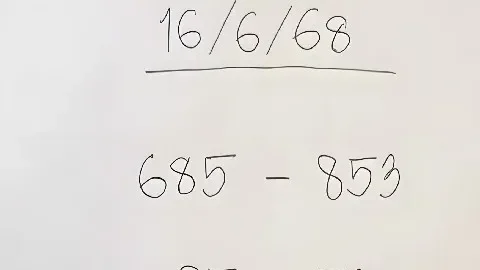 16/6/68
685 - 853